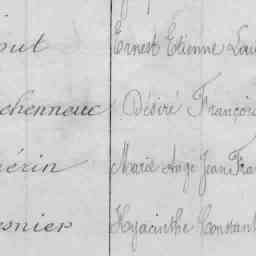 out Ernest Etienne Lou
chenneuc Désiré François
uérin Marie Ange Jean Fra
esnier Hyacinthe Constant